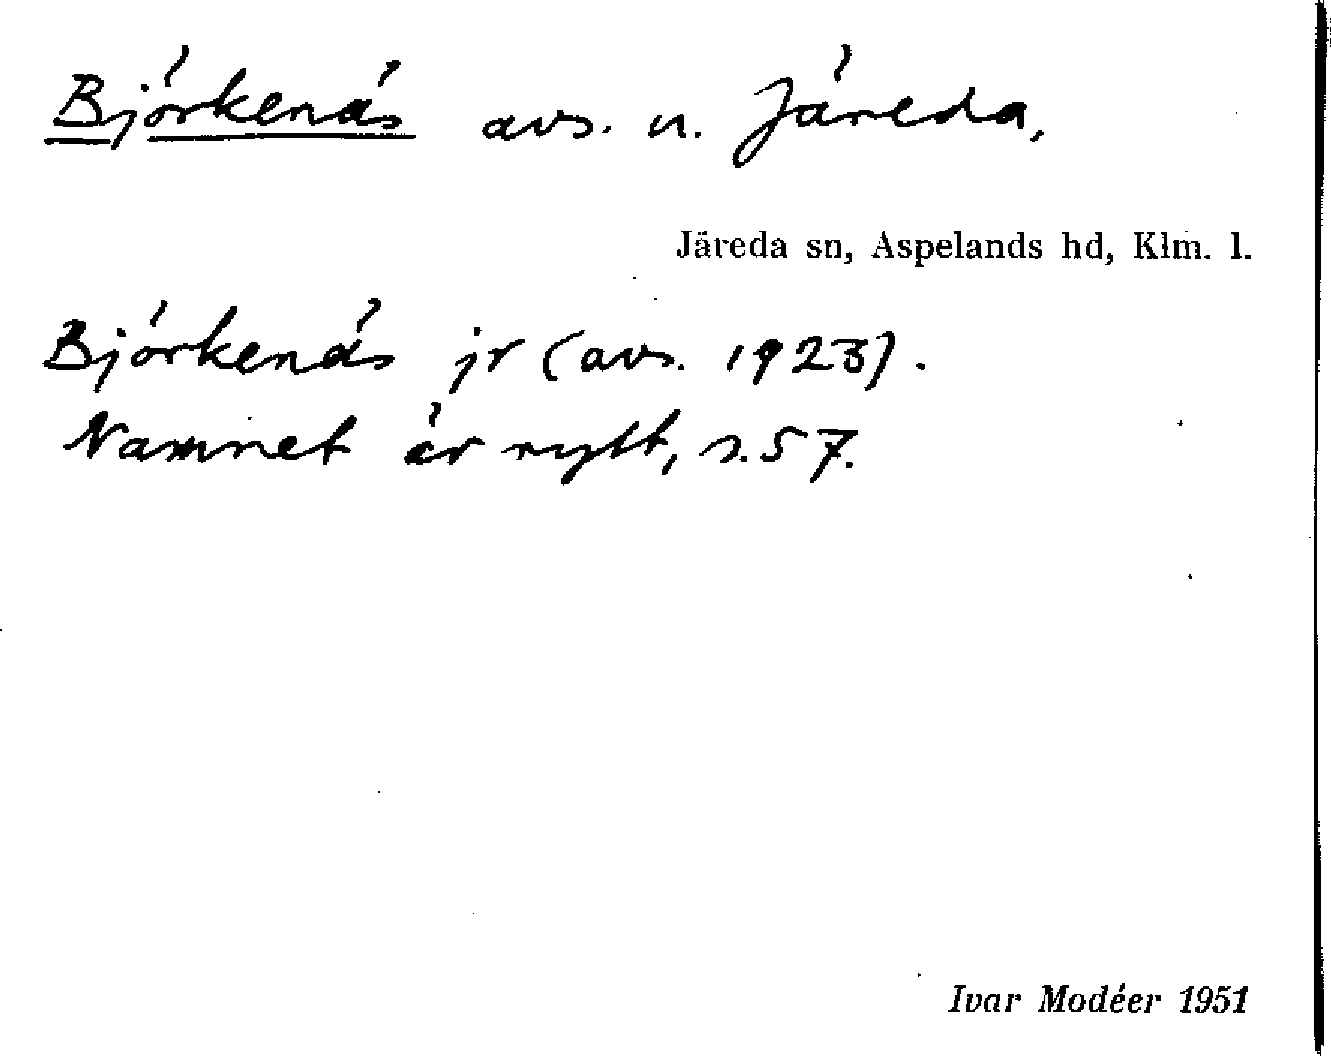 Björkenäs avs. u. Järeda,
Järeda sn, Aspelands hd, Klm. l.
Björkenäs jr (avs. 1923).
Namnet är nytt, s. 57.
Ivar Modéer 1951